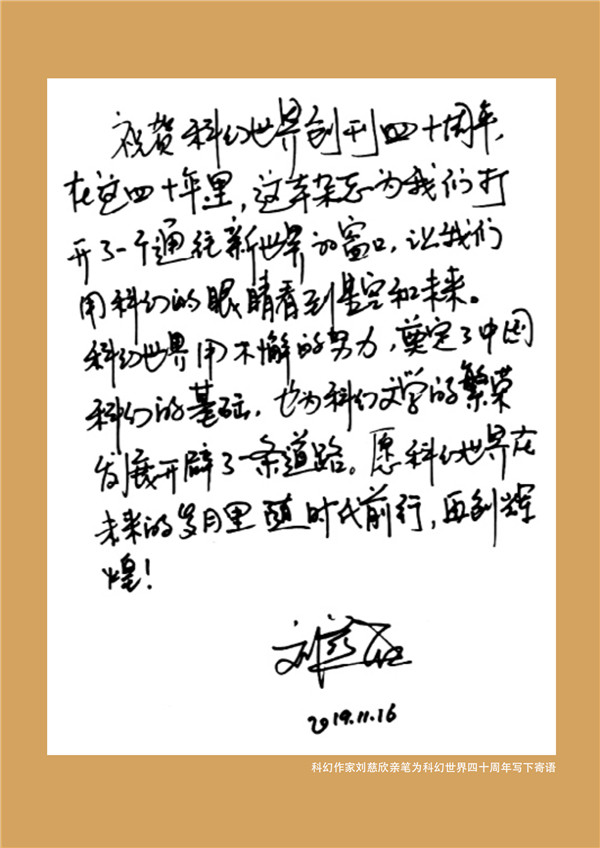 祝贺科幻世界创刊四十周年,
在这四十年里,这本杂志为我们打
开了一个通往新世界的窗口,让我们
用科幻的眼睛看到星空和未来。
科幻世界用不懈的努力,奠定了中国
科幻的基础,也为科幻文学的繁荣
发展开辟了一条道路。愿科幻世界在
未来的岁月里随时代前行,再创辉
煌!
刘慈欣
2019.11.16
科幻作家刘慈欣亲笔为科幻世界四十周年写下寄语